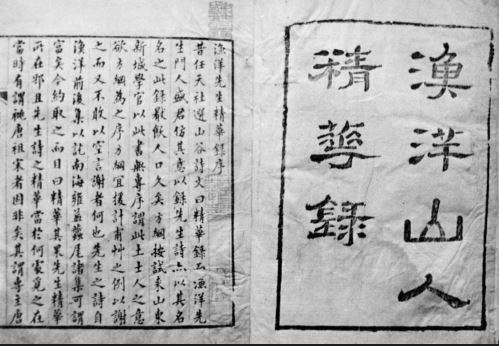 漁洋山人
精華錄
漁洋先生精華錄序
昔任天社選山谷詩文曰精華錄漁洋先
生門人盛君仿其意以錄先生詩亦以其名
名之此錄人口久矣方綱按試來山東
新城學官以此書無專序謂此土士人之意
欲方綱為之序方綱宜援計甫艸之例以謝
之而又不敢以空言謝者何也先生之詩自
漁洋前後集以訖南海雍益蠶尾諸集可謂
富矣今約取之而目曰精華其果先生精華
所在邪且先生詩之精華當於何處覓之在
當時有謂祧唐祖宋者固非矣其謂專主唐